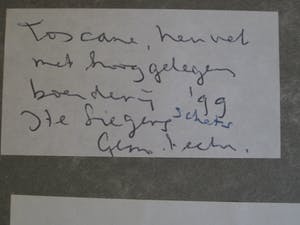 Toscane, heuvel
met hooggelegen
boerderij '99
Ite Siegers schets
Gem. techn.